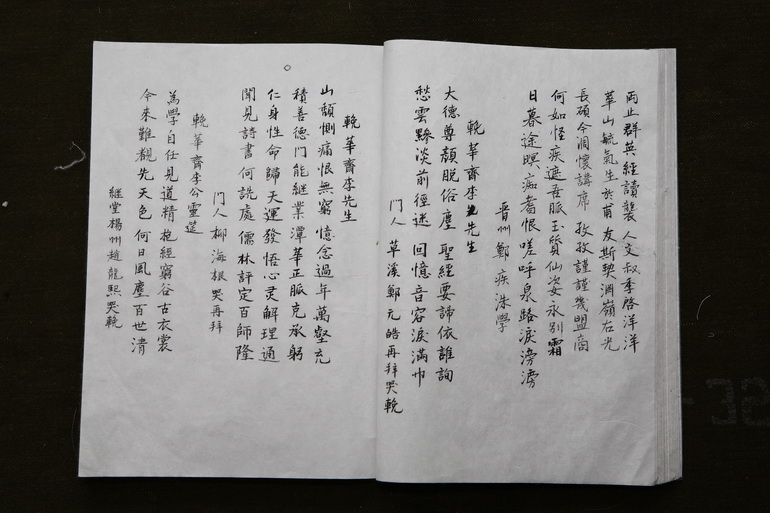 雨止群英經讀襲 人文叔季啓洋洋
華山毓氣生於甫 友斯契洞嶺右光
長碩今凋懷講席 孜孜謹謹幾盟商
何如怪疾遮吾脈 玉質仙姿永別霜
日暮途暝痴蒼恨 嗟呼泉路淚滂滂
晋州鄭 疾洙學
輓華齋李先生
大德尊顔脱俗塵 聖經要諦依誰詢
愁雲黲淡前徑迷 回憶音容淚滿巾
門人 草溪鄭元皓再拜哭輓
輓華齋李先生
山頹惻痛恨無窮 憶念過年萬壑充
積善德門能継業 潭華正脈克承躬
仁身性命歸天運 發悟心灵解理通
聞見詩書何説處 儒林評定百師隆
門人 柳海根 哭再拜
輓華齋李公靈筵
為學自任見道精 抱經窮谷古衣裳
今来難觀先天色 何日風塵百世清
継堂楊州趙龍熙哭輓